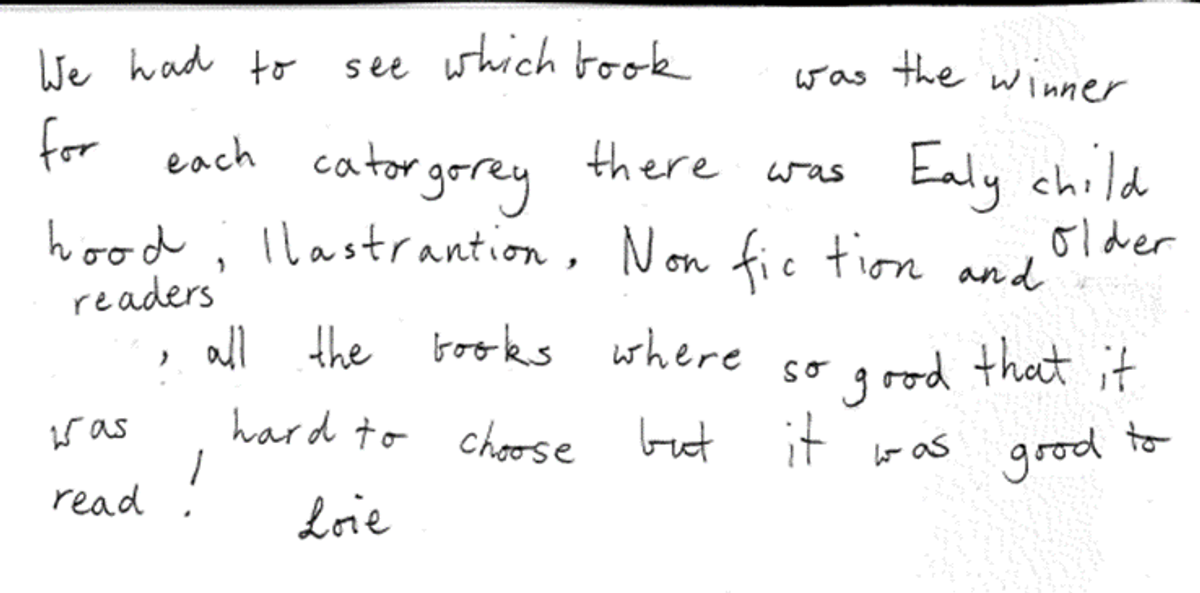 We had to see which book was the winner
for each catorgorey there was Ealy child
hood, Ilastrantion, Non fiction and older
readers
, all the books where so good that it
was hard to choose but it was good to
read! Loie